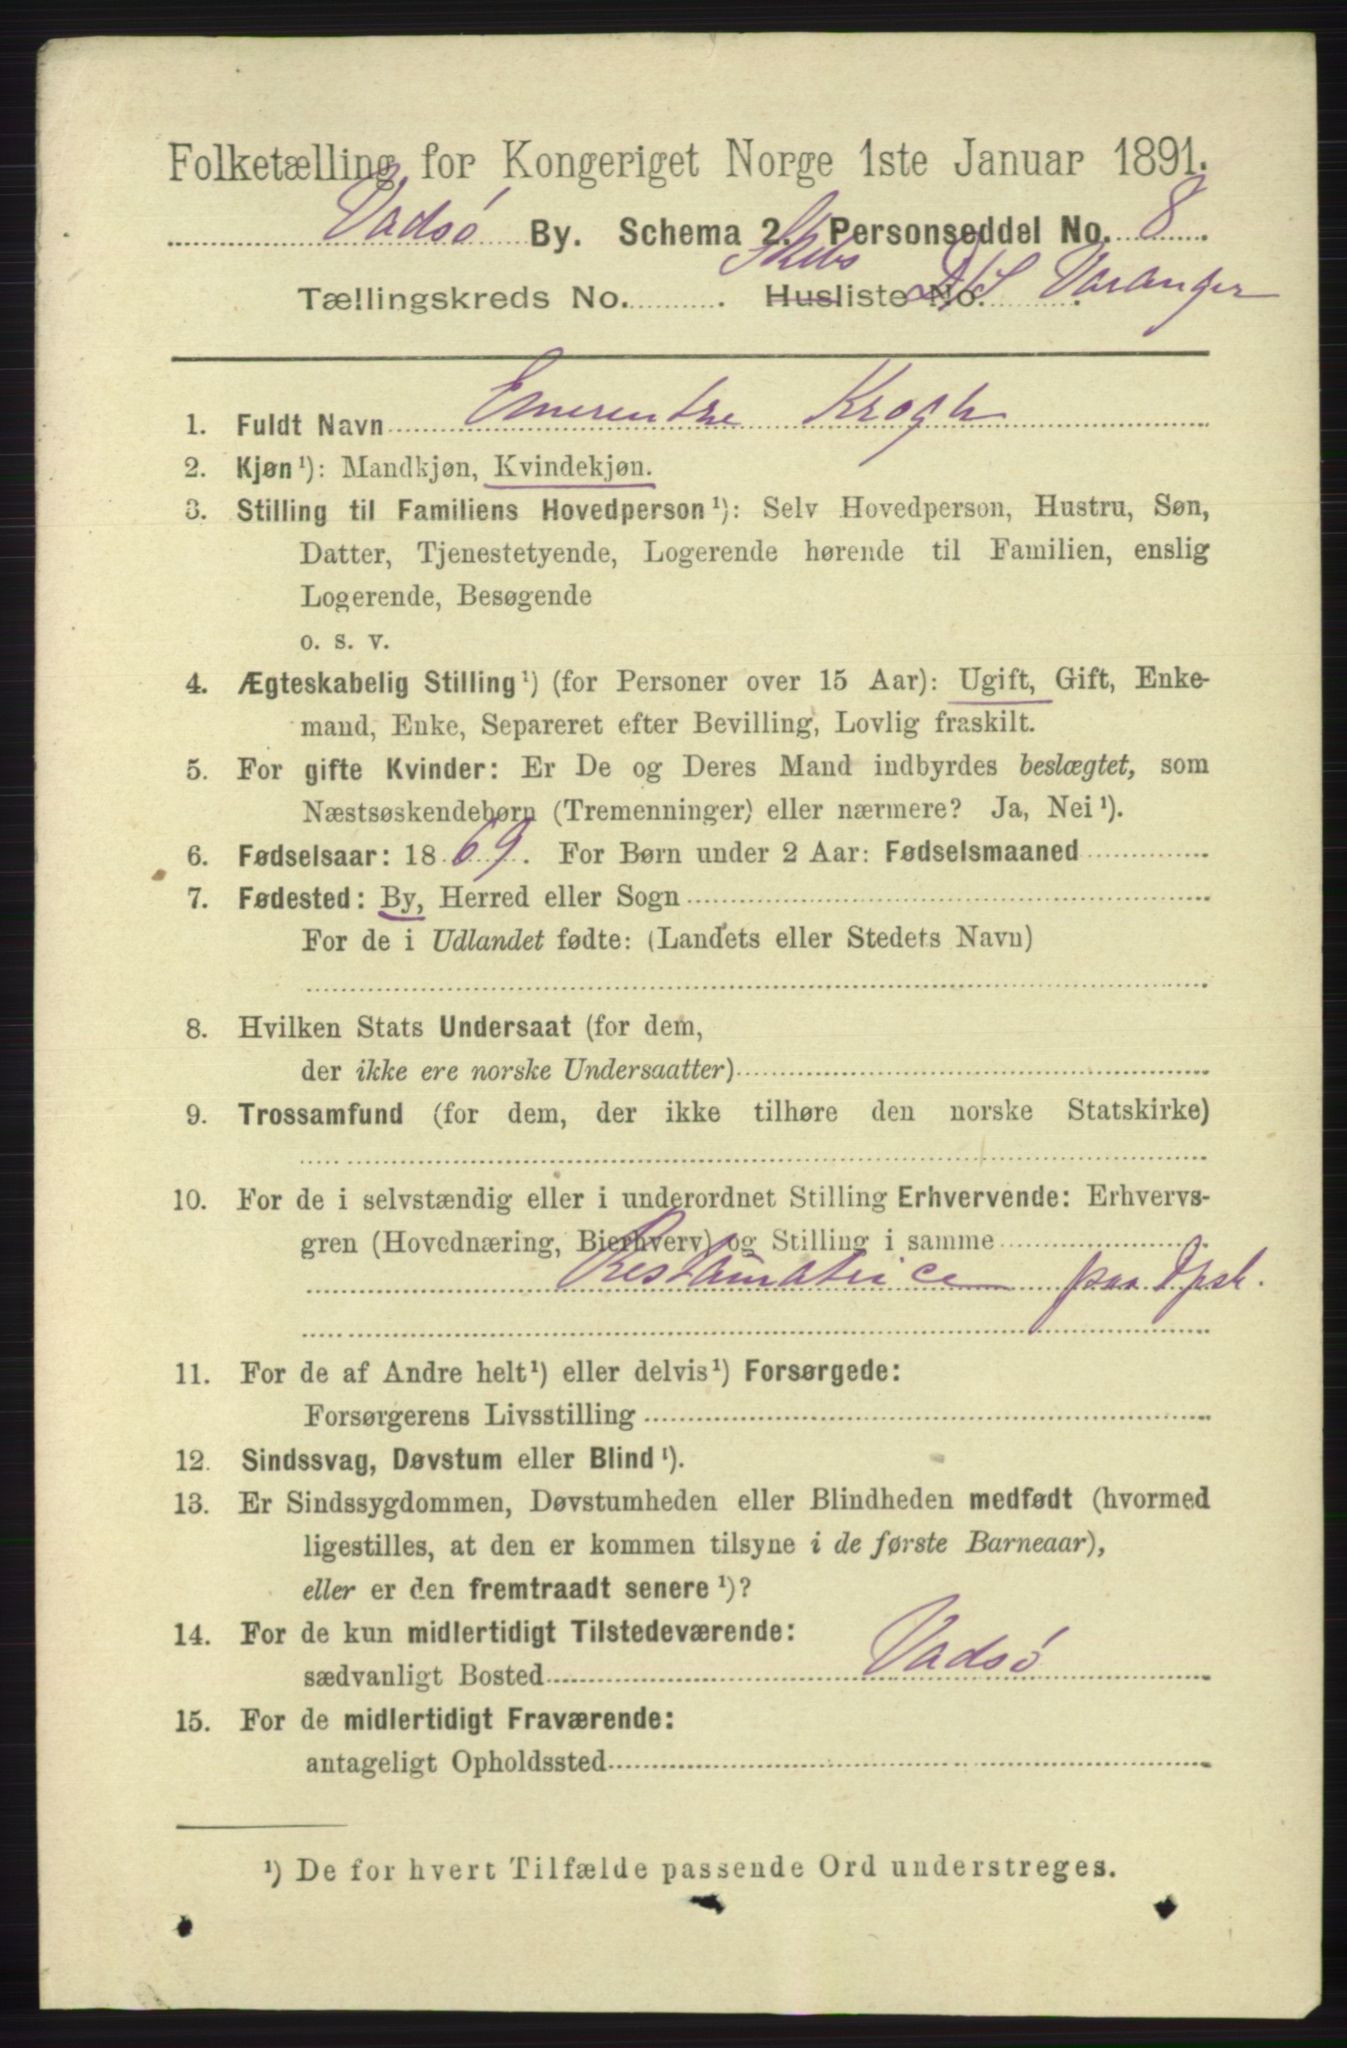 Folketælling for Kongeriget Norge 1ste Januar 1891.
Vadsø By. Schema 2. Personseddel No. 8
Tællingskreds No. Husliste No. Skibs D/S Varanger
1. Fuldt Navn Emerentze Krogh
2. Kjøn¹): Mandkjøn, Kvindekjøn.
3. Stilling til Familiens Hovedperson¹): Selv Hovedperson, Hustru, Søn,
Datter, Tjenestetyende, Logerende hørende til Familien, enslig
Logerende, Besøgende
o. s. v.
4. Ægteskabelig Stilling¹) (for Personer over 15 Aar): Ugift, Gift, Enke-
mand, Enke, Separeret efter Bevilling, Lovlig fraskilt.
5. For gifte Kvinder: Er De og Deres Mand indbyrdes beslægtet, som
Næstsøskendebørn (Tremenninger) eller nærmere? Ja, Nei¹).
6. Fødselsaar: 1869. For Børn under 2 Aar: Fødselsmaaned
7. Fødested: By, Herred eller Sogn
For de i Udlandet fødte: (Landets eller Stedets Navn)
8. Hvilken Stats Undersaat (for dem,
der ikke ere norske Undersaatter)
9. Trossamfund (for dem, der ikke tilhøre den norske Statskirke)
10. For de i selvstændig eller i underordnet Stilling Erhvervende: Erhvervs-
gren (Hovednæring, Bierhverv) og Stilling i samme
Restauratrice paa Dpsk.
11. For de af Andre helt¹) eller delvis¹) Forsørgede:
Forsørgerens Livsstilling
12. Sindssvag, Døvstum eller Blind¹).
13. Er Sindssygdommen, Døvstumheden eller Blindheden medfødt (hvormed
ligestilles, at den er kommen tilsyne i de første Barneaar),
eller er den fremtraadt senere¹)?
14. For de kun midlertidigt Tilstedeværende:
sædvanligt Bosted Vadsø
15. For de midlertidigt Fraværende:
antageligt Opholdssted
¹) De for hvert Tilfælde passende Ord understreges.